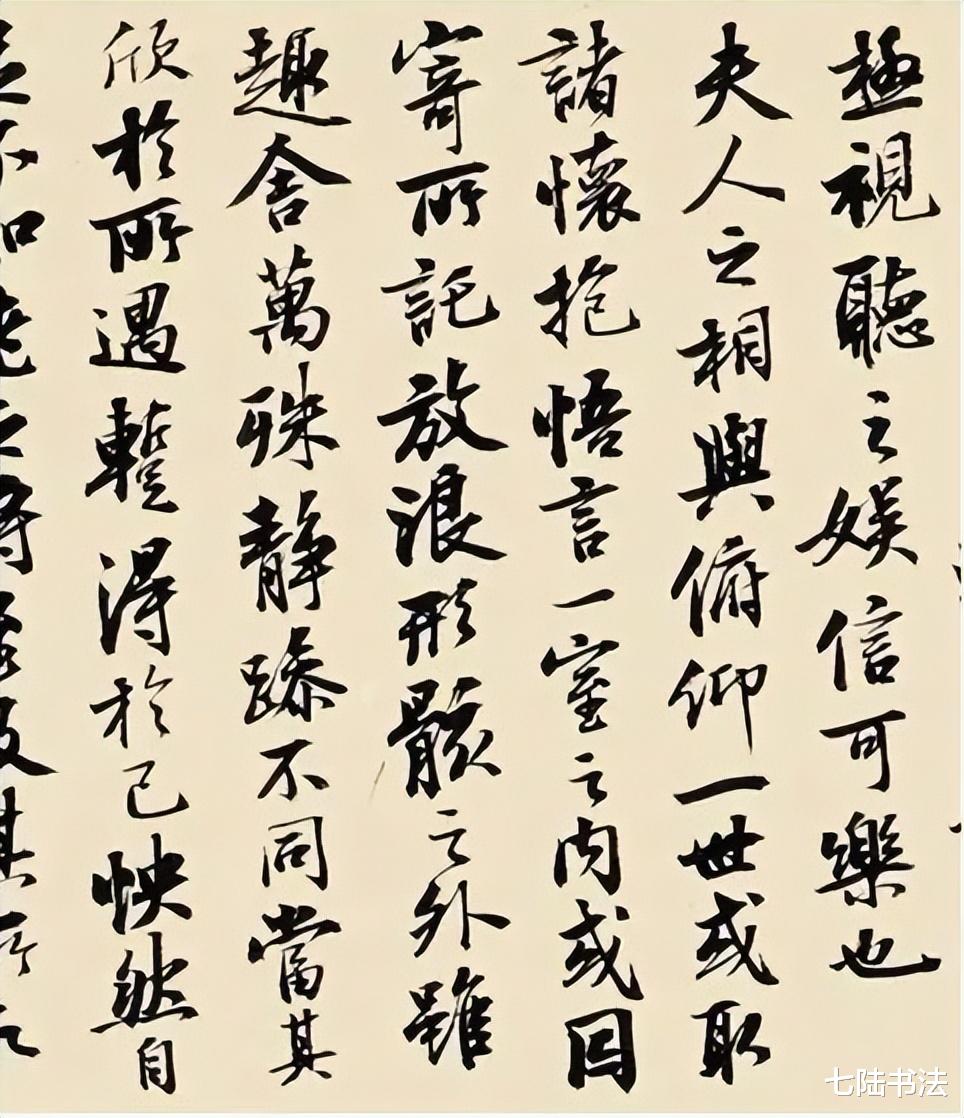 極視聽之娛信可樂也
夫人之相與俯仰一世或取
諸懷抱悟言一室之内或因
寄所託放浪形骸之外雖
趣舍萬殊静躁不同當其
欣於所遇蹔得於己怏然自
七陆书法